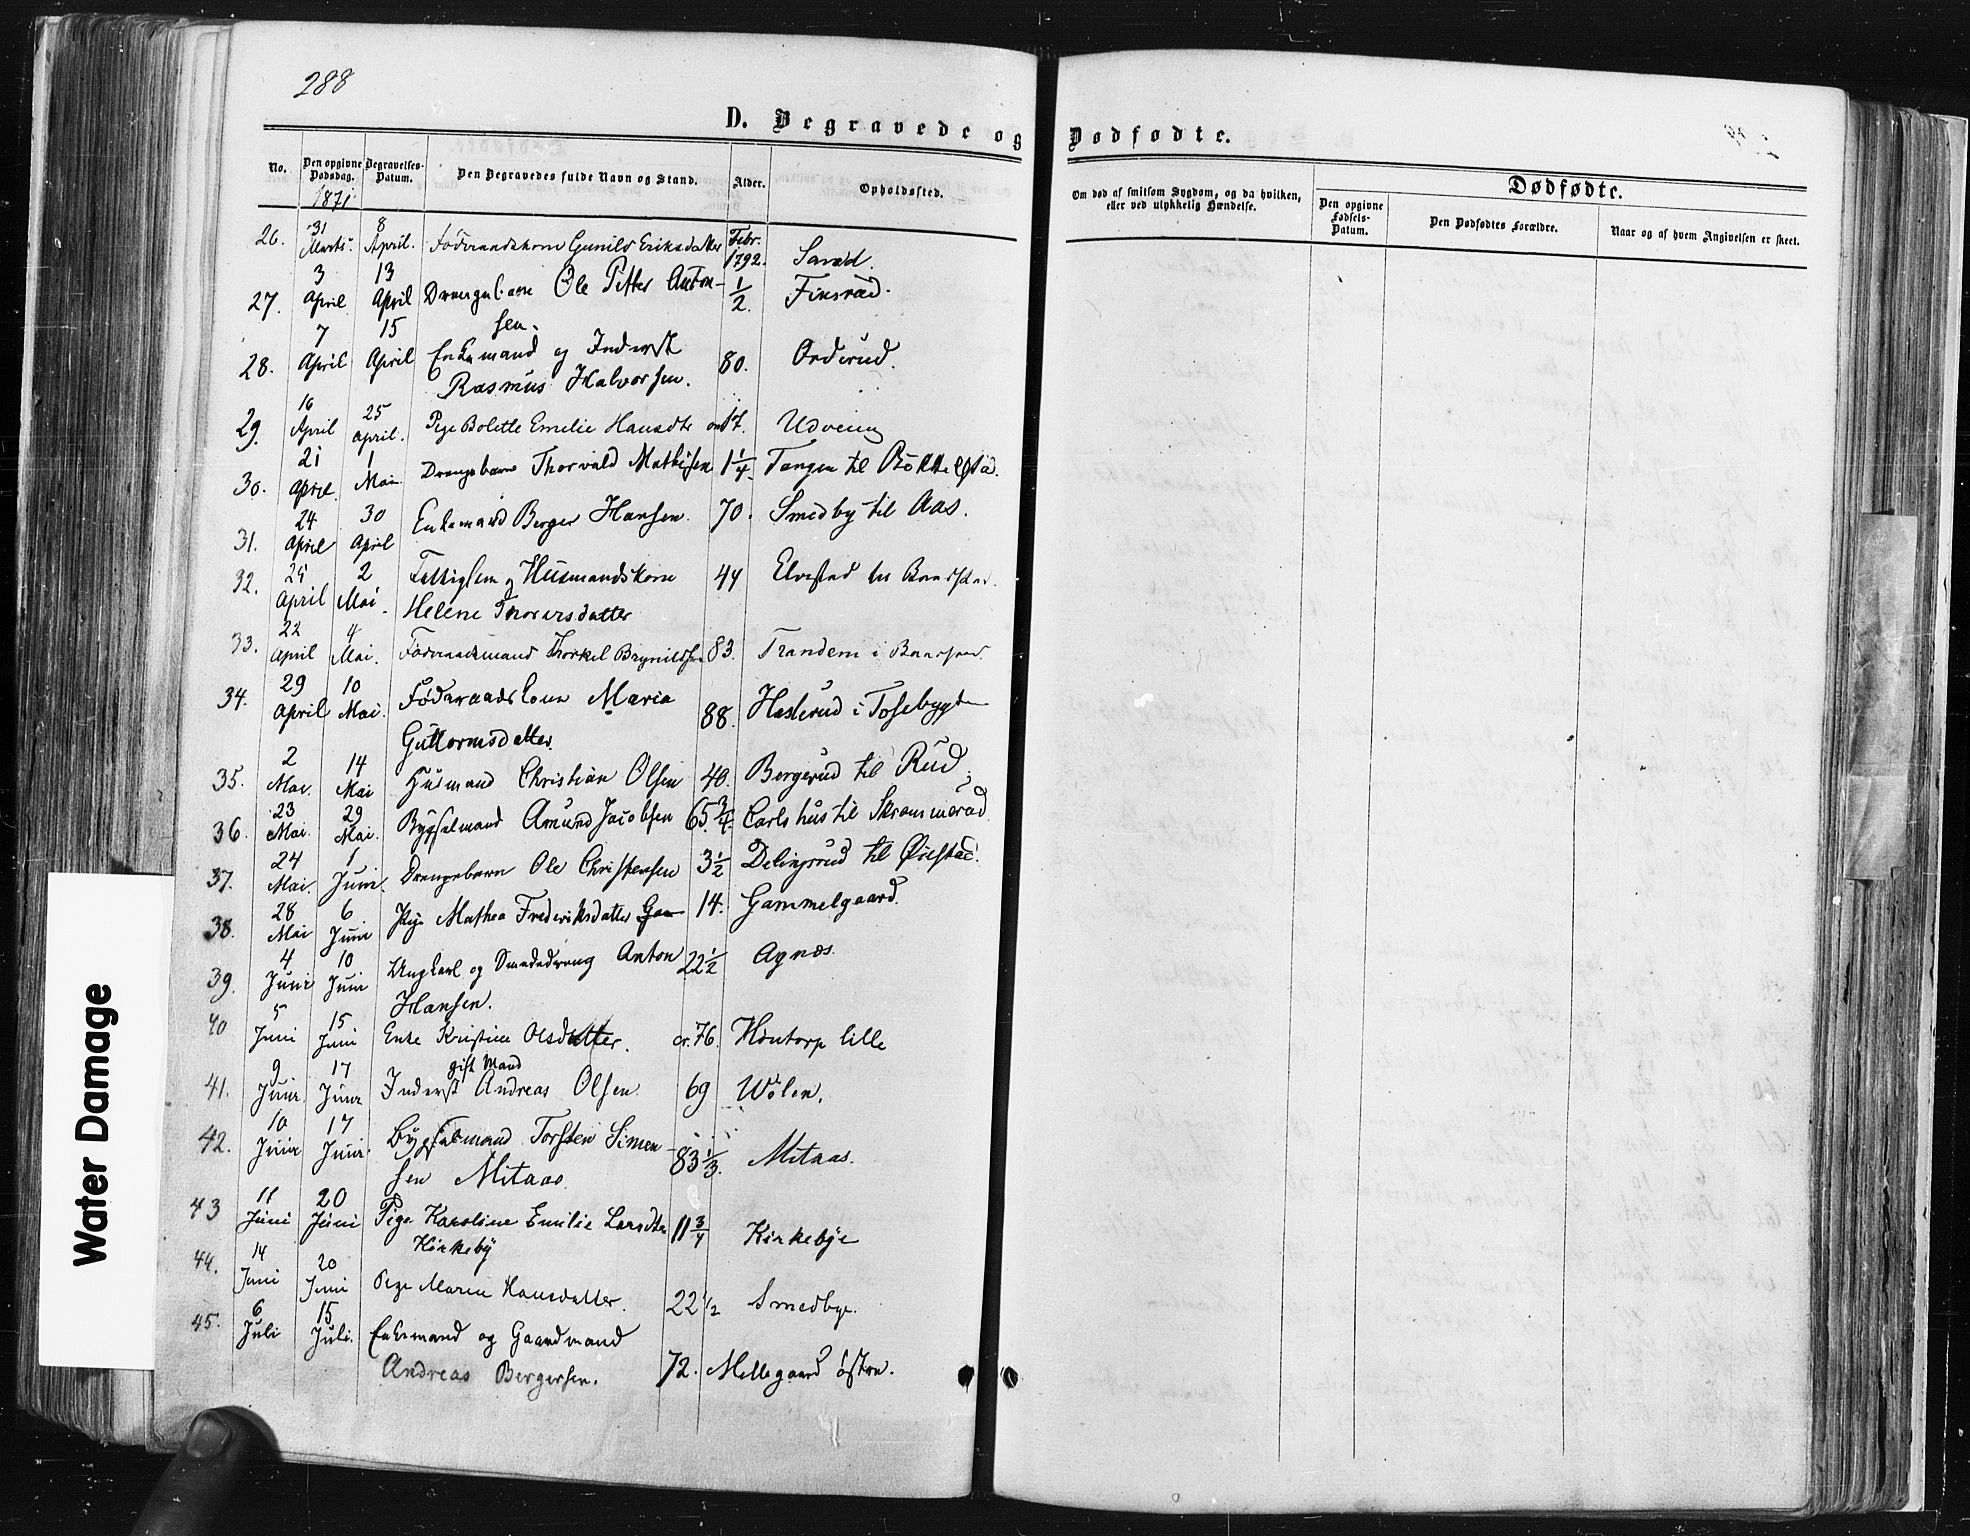 288
D. Begravede og Dødfødte.
No. Den opgivne Dødsdag. Begravelses-Datum. Den Begravedes fulde Navn og Stand. Alder. Opholdssted. Om død af smitsom Sygdom, og da hvilken, eller ved ulykkelig Hændelse. Dødfødte.
Den opgivne Fødsels-Datum. Den Dødfødtes Forældre. Naar og af hvem Angivelsen er skeet.
1871
26. 31 Marts. 8 April. Føderaadskone Gunild Eriksdatter Febr. 1792.
27. 3 April 13 April Drengebarn Ole Petter Anton- 1/2. Finsrud.
sen.
28. 7 April 15 April Enkemand og Inderst 80. Orderud.
Rasmus Halvorsen.
29. 16 April 25 April. Pige Bolette Emilie Hansdtr
30. 21 April. 1 Mai Drengebarn Thorvald Mathisen 1 1/4. Tangen til
31. 24 April 30 April Enkemand Berger Hansen. 70. Smedby til Aas.
32. 25 April 2 Mai. Fattiglem og Husmandskone 44 Elvestad
Helene
33. 22 April 4 Mai. Føderaadsmand Thorkel Brynildsen 83. Trandem i
34. 29 April 10 Mai. Føderaadskone Maria 88. Haslerud i
Guttormsdatter.
35. 2 Mai. 14 Mai Husmand Christian Olsen 40. Bergerud til Rud.
36. 23 Mai. 29 Mai. Bygselmand Amund Jacobsen 65 3/4. Carlshus til Skrammerud
37. 24 Mai. 1 Juni. Drengebarn Ole Christensen 3 1/2 Delingsrud til
38. 28 Mai 6 Juni Pige Mathea Frederiksdatter 14. Gammelgaard.
39. 4 Juni 10 Juni Ungkarl og Smededreng Anton 22 1/2 Agnæs.
Hansen.
40 5 Juni 15 Juni Enke Kristine Olsdatter. cr. 76. Huutorp lille
gift Mand
41. 9 Juni. 17 Juni Inderst Andreas Olsen. 69 Wølen.
42. 10 Juni 17 Juni. Bygselmand Torsten Simen- 83 1/3. Mitaas.
sen Mitaas
43 11 Juni 20 Juni Pige Karoline Emilie Larsdtr 11 3/4 Kirkebye
Kirkeby
44. 14 Juni 20 Juni Pige Maren Hansdatter. 22 1/2 Smedbye.
45. 6 Juli 15 Juli. Enkemand og Gaardmand
Andreas Bergersen. 72. Mellegaard østre.
Water Damage